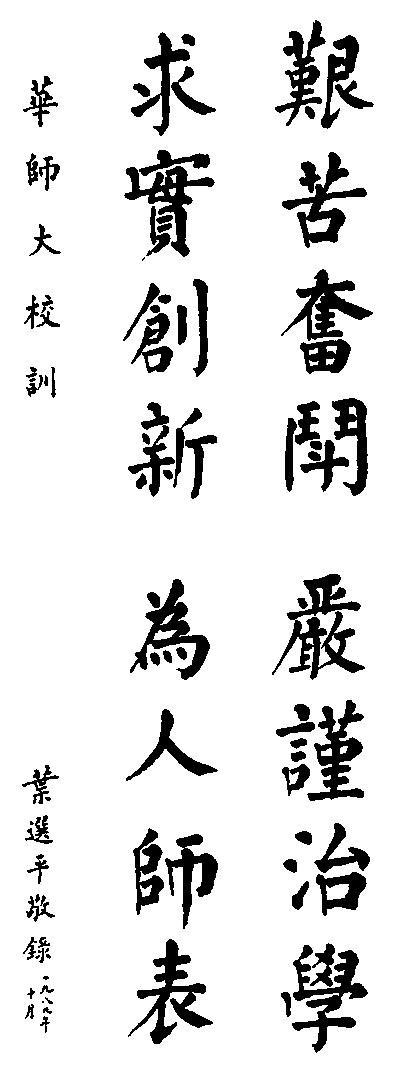 艱苦奮鬪 嚴謹治學
求實創新 為人師表
華師大校訓
葉選平敬錄 一九八九年
十月